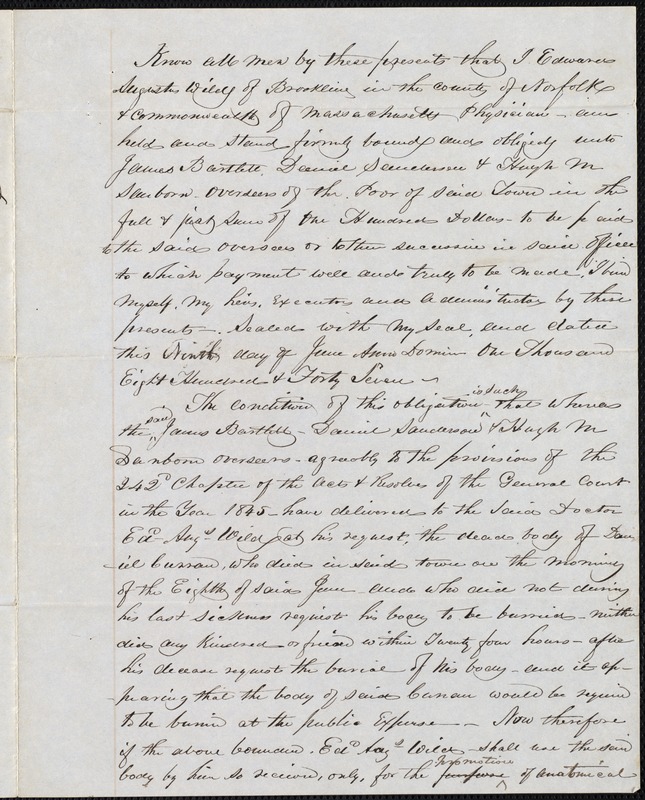 Know all men by these presents that I Edward
Augustus Wild of Brookline in the county of Norfolk
& Commonwealth of Massachusetts Physician - am
held and stand firmly bound and obliged unto
James Bartlett, Daniel Sanderson & Hugh M
Sanborn. Overseers of the Poor of said Town in the
full & just sum of One Hundred Dollars - to be paid
to the said overseers or to their successors in said office
to which payment well and truly to be made, I bind
myself, my heirs, Executors and administrators by these
presents -. Sealed with my seal, and dated
this Ninth day of June Anno Domini One Thousand
Eight Hundred & Forty Seven -
The condition of this obligation is such that whereas
the said James Bartlett - Daniel Sanderson & Hugh M
Sanborn overseers - agreeably to the provisions of the
242d Chapter of the Acts & Resolves of the General Court
in the Year 1845 - have delivered to the said Doctor
Edd Augs Wild, at his request, the dead body of Dan
-iel Curran, who died in said town on the morning
of the Eighth of said June - and who did not during
his last sickness request his body to be burried - neither
did any Kindred or friend within Twenty four hours - after
his decease request the burial of his body - and it ap-
-pearing that the body of said Curran would be required
to be buried at the public Expense - Now therefore
if the above bounden Edd Augs Wild - shall use the said
body by him so received, only, for the purpose promotion of anatomical